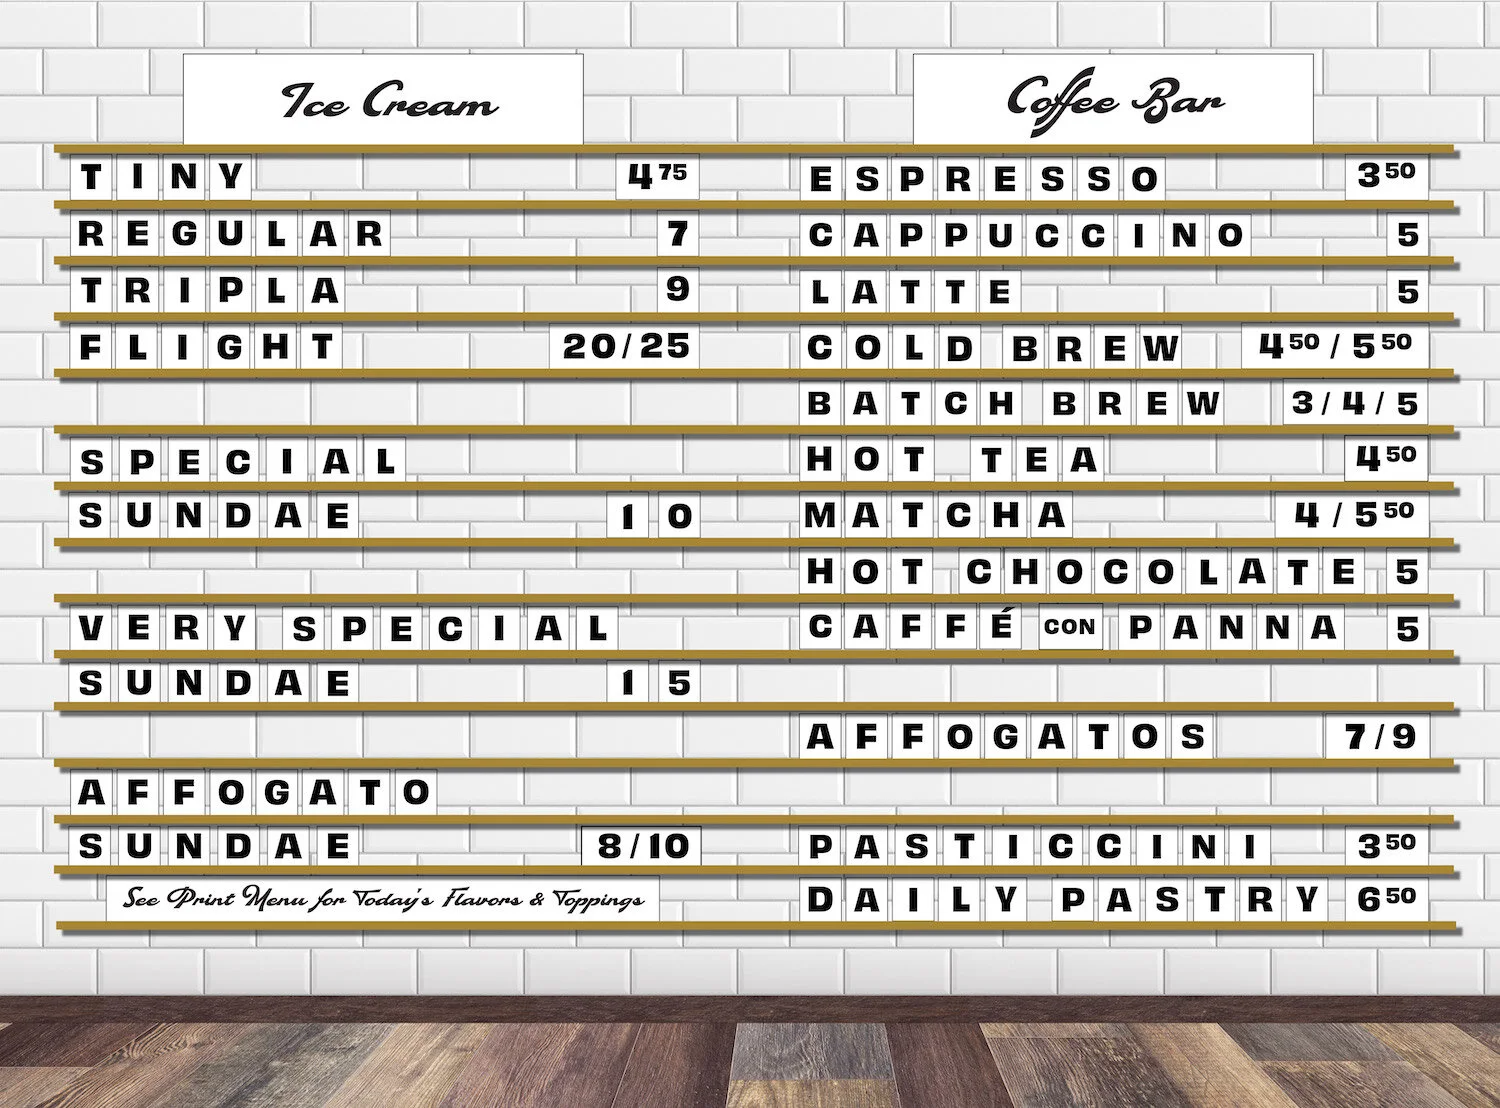 Ice Cream
TINY 4 75
REGULAR 7
TRIPLA 9
FLIGHT 20/25
SPECIAL
SUNDAE 10
VERY SPECIAL
SUNDAE 15
AFFOGATO
SUNDAE 8/10
See Print Menu for Today's Flavors & Toppings
Coffee Bar
ESPRESSO 3 50
CAPPUCCINO 5
LATTE 5
COLD BREW 4 50 / 5 50
BATCH BREW 3/4/5
HOT TEA 4 50
MATCHA 4 / 5 50
HOT CHOCOLATE 5
CAFFÉ CON PANNA 5
AFFOGATOS 7/9
PASTICCINI 3 50
DAILY PASTRY 6 50